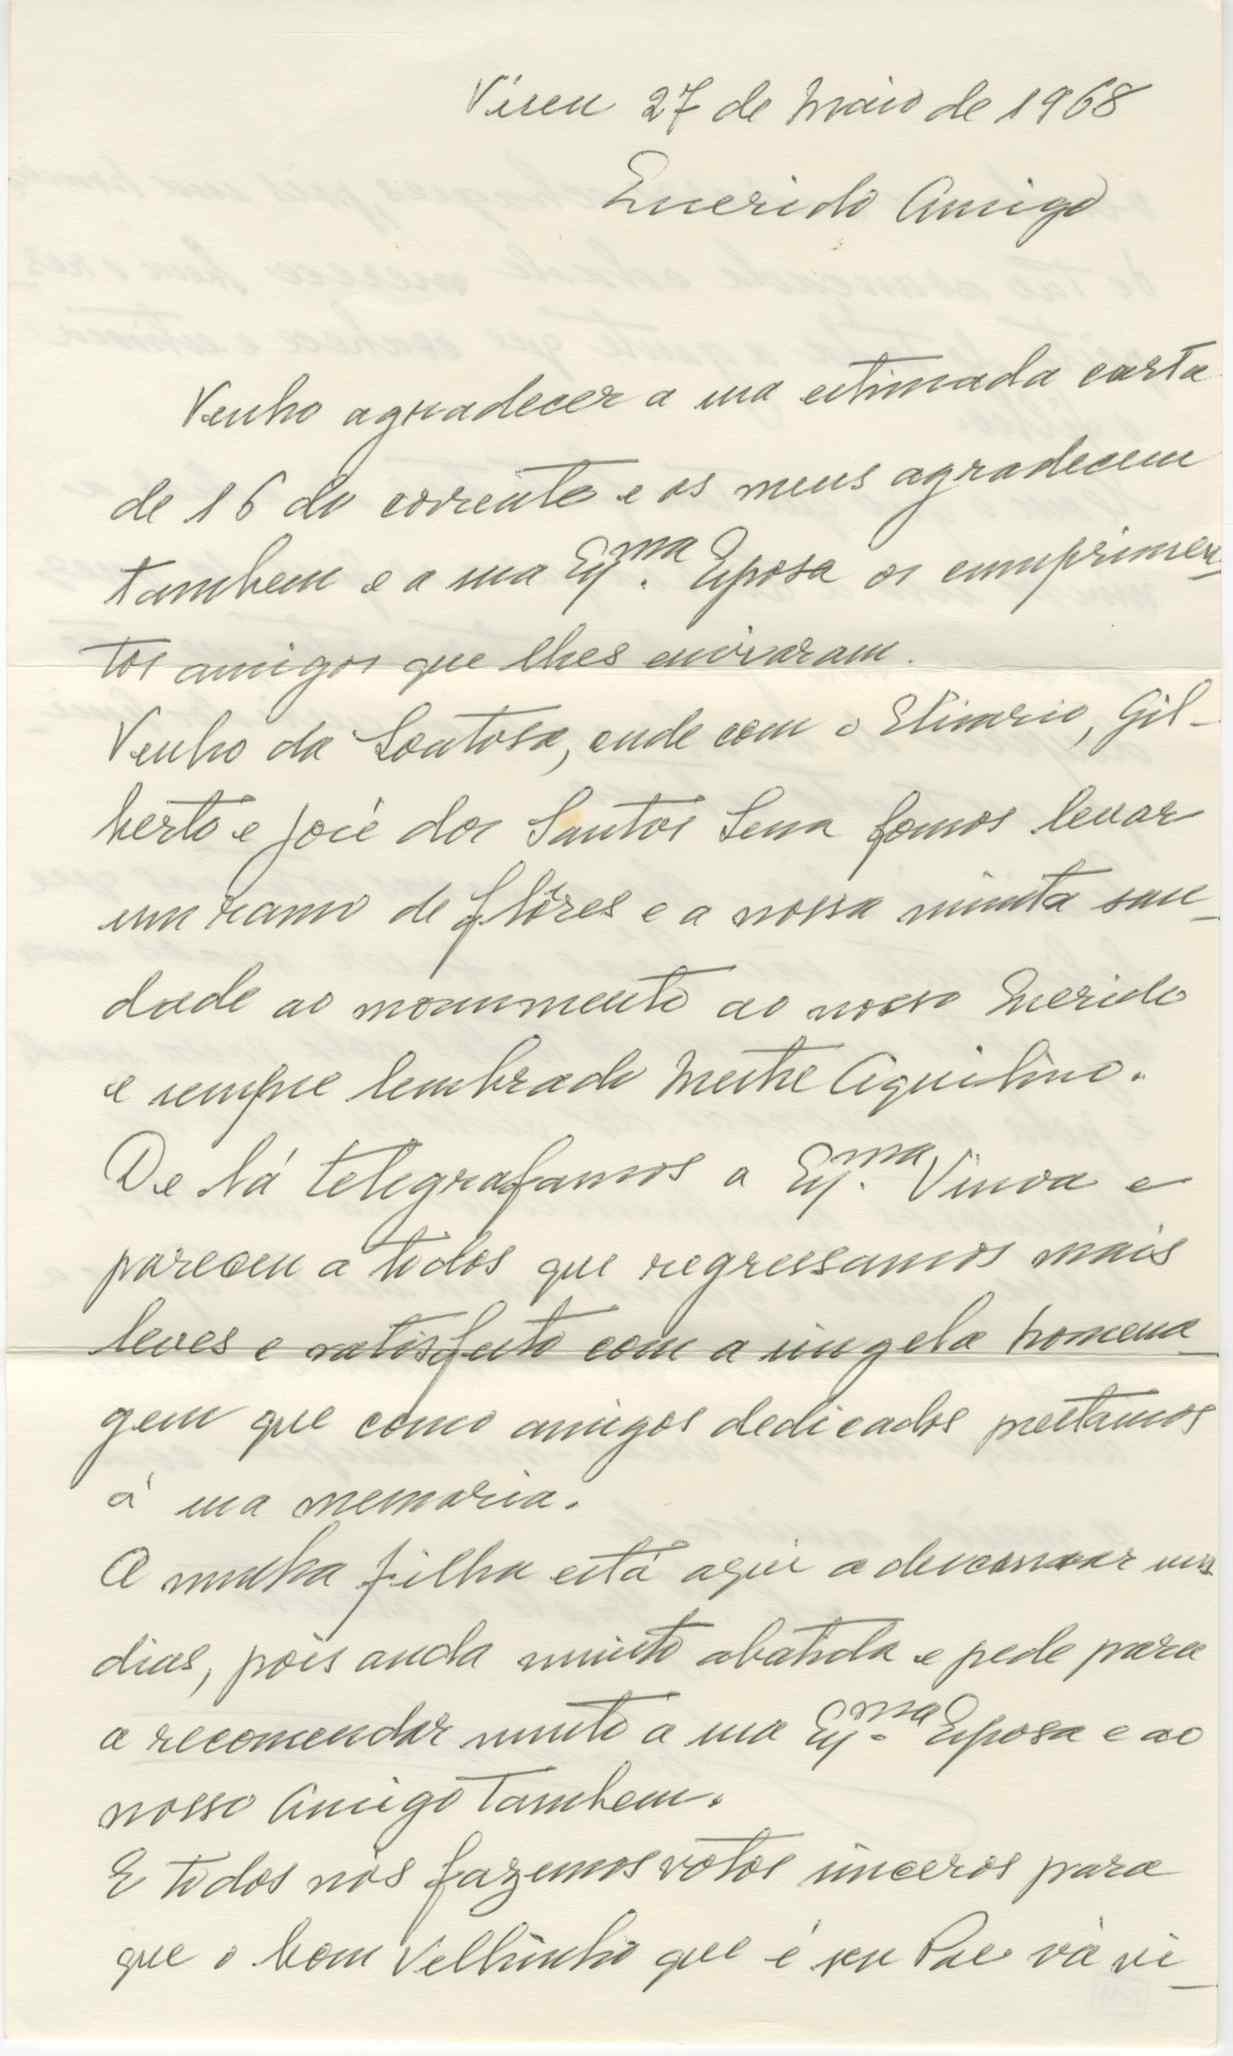 Viseu 27 de Maio de 1968
Querido Amigo
Venho agradecer a sua estimada carta
de 16 do corrente e os meus agradecem
tambem e a sua Exma. Esposa os cumprimen-
tos amigos que lhes enviaram.
Venho da Soutosa, onde com o Elisario, Gil-
berto e José dos Santos Sena fomos levar
um ramo de flôres e a nossa muita sau-
dade ao monumento ao nosso Querido
e sempre lembrado Mestre Aquilino.
De lá telegrafamos a Exma. Viuva e
pareceu a todos que regressamos mais
leves e satisfeito com a singela homena-
gem que como amigos dedicados prestamos
á sua memoria.
A minha filha está aqui a descansar uns
dias, pois anda muito abatida e pede para
a recomendar muito a sua Exma. Esposa e ao
nosso Amigo Tambem.
E todos nós fazemos votos sinceros para
que o bom Velhinho que é seu Pae vá vi-